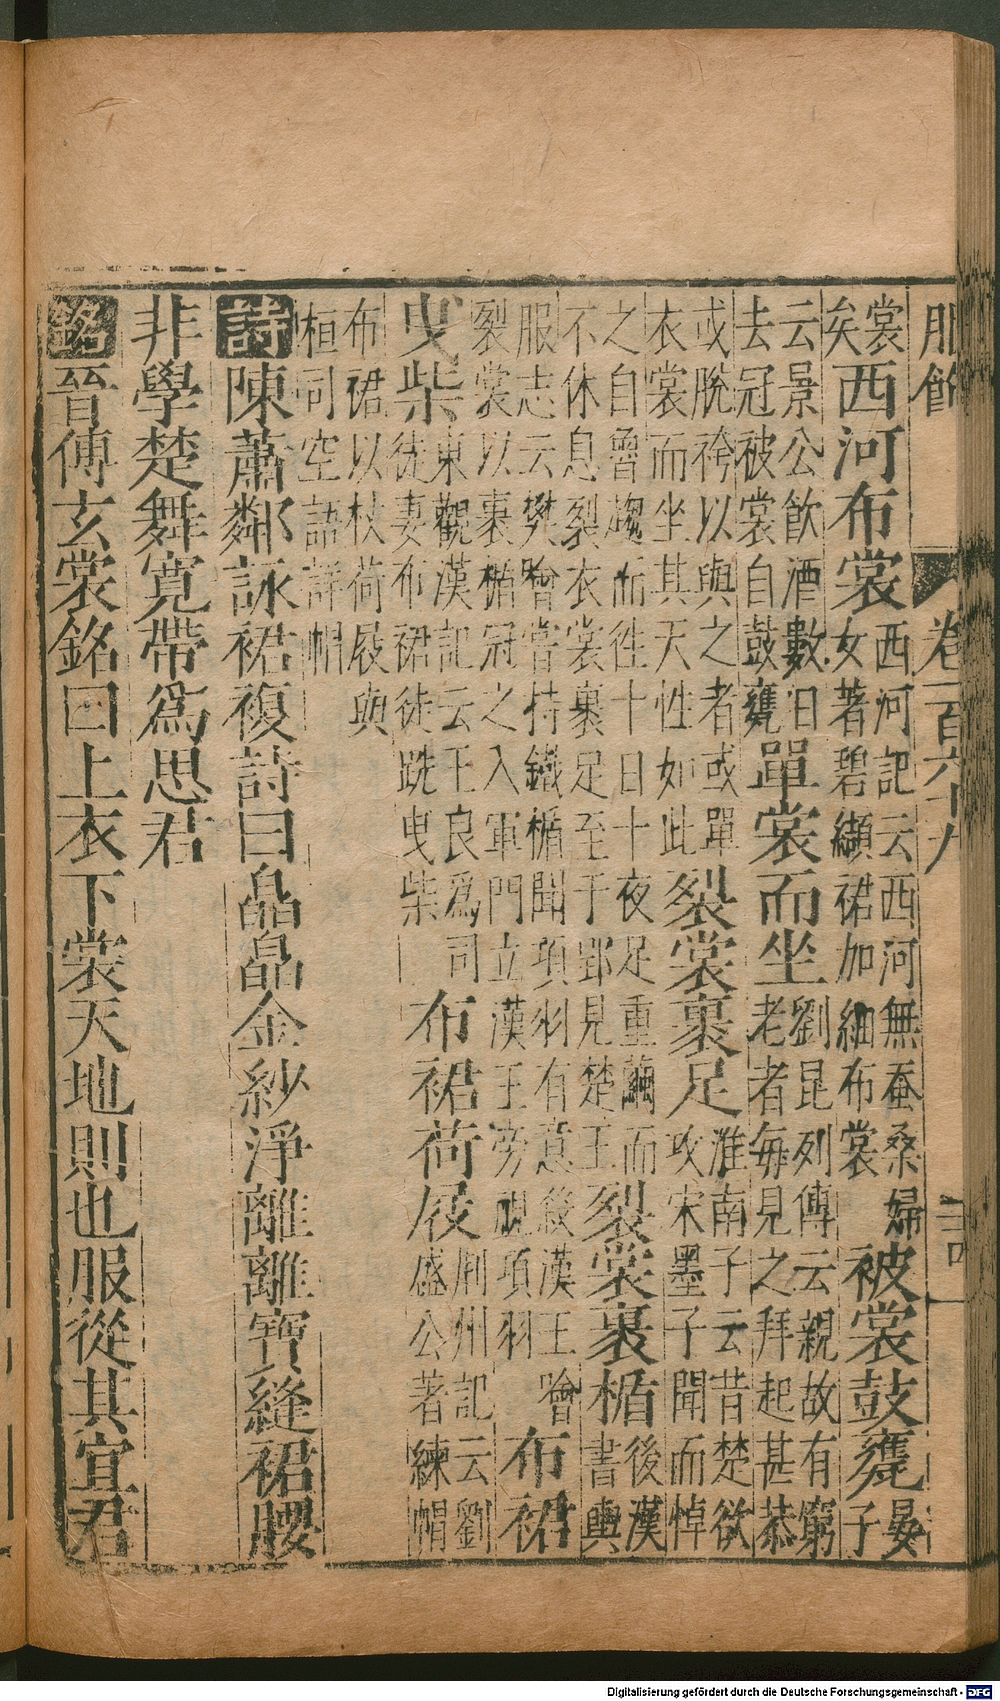 服飾 卷一百六十九
裳矣西河布裳西河記云西河無蚕桑婦女著碧纈裙加細布裳被裳鼓甕晏子
云景公飲酒數日去冠被裳自鼓甕單裳而坐劉昆列傳云親故有窮老者毎見之拜起甚恭
或脫袴以與之者或單衣裳而坐其天性如此裂裳裹足淮南子云昔楚欲攻宋墨子聞而悼
之自魯趨而徃十日十夜足重繭而不休息裂衣裳裹足至于郢見楚王裂裳裹楯後漢書輿
服志云樊噲嘗持鐵楯聞項羽有意殺漢王噲裂裳以裹楯冠之入軍門立漢王旁視項羽布裙
曳柴東觀漢記云王良爲司徒妻布裙徒跣曳柴布裙荷屐荆州記云劉盛公著練帽
布裙以杖荷屐與桓司空語詳帽
詩陳蕭鄰詠裙複詩曰皛皛金紗淨離離寶縫裙腰
非學楚舞寛帶爲思君
銘晉傅玄裳銘曰上衣下裳天地則也服從其宜君
Digitalisierung gefördert durch die Deutsche Forschungsgemeinschaft - DFG